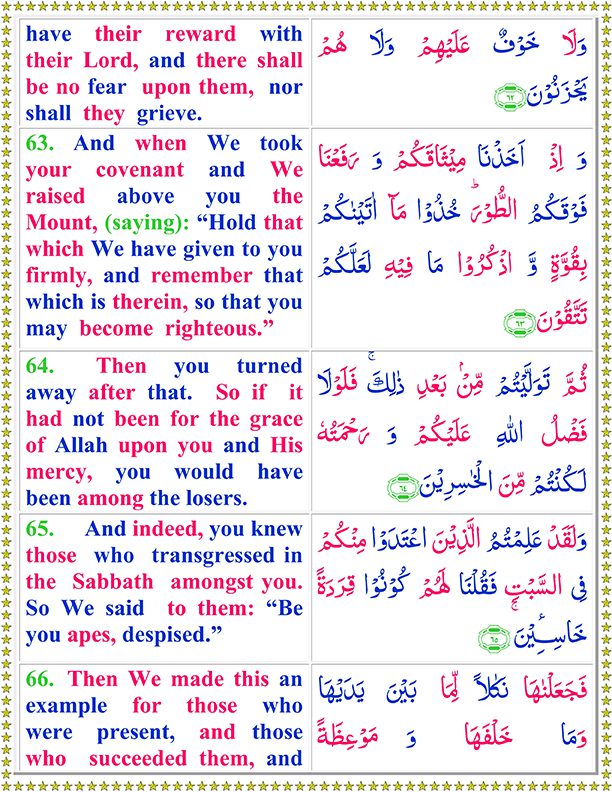 have their reward with
their Lord, and there shall
be no fear upon them, nor
shall they grieve.
وَلَا خَوْفٌ عَلَيْهِمْ وَلَا هُمْ
يَحْزَنُوْنَ ٦٢
63. And when We took
your covenant and We
raised above you the
Mount, (saying): “Hold that
which We have given to you
firmly, and remember that
which is therein, so that you
may become righteous.”
وَ اِذْ اَخَذْنَا مِيْثَاقَكُمْ وَ رَفَعْنَا
فَوْقَكُمُ الطُّوْرَ ؕ خُذُوْا مَاۤ اٰتَيْنٰكُمْ
بِقُوَّةٍ وَّ اذْكُرُوْا مَا فِيْهِ لَعَلَّكُمْ
تَتَّقُوْنَ ٦٣
64. Then you turned
away after that. So if it
had not been for the grace
of Allah upon you and His
mercy, you would have
been among the losers.
ثُمَّ تَوَلَّيْتُمْ مِّنْۢ بَعْدِ ذٰلِكَ ۚ فَلَوْلَا
فَضْلُ اللهِ عَلَيْكُمْ وَ رَحْمَتُهٗ
لَكُنْتُمْ مِّنَ الْخٰسِرِيْنَ ٦٤
65. And indeed, you knew
those who transgressed in
the Sabbath amongst you.
So We said to them: “Be
you apes, despised.”
وَلَقَدْ عَلِمْتُمُ الَّذِيْنَ اعْتَدَوْا مِنْكُمْ
فِى السَّبْتِ فَقُلْنَا لَهُمْ كُوْنُوْا قِرَدَةً
خَاسِـِٕيْنَ ۚ ٦٥
66. Then We made this an
example for those who
were present, and those
who succeeded them, and
فَجَعَلْنٰهَا نَكَالًا لِّمَا بَيْنَ يَدَيْهَا
وَمَا خَلْفَهَا وَ مَوْعِظَةً